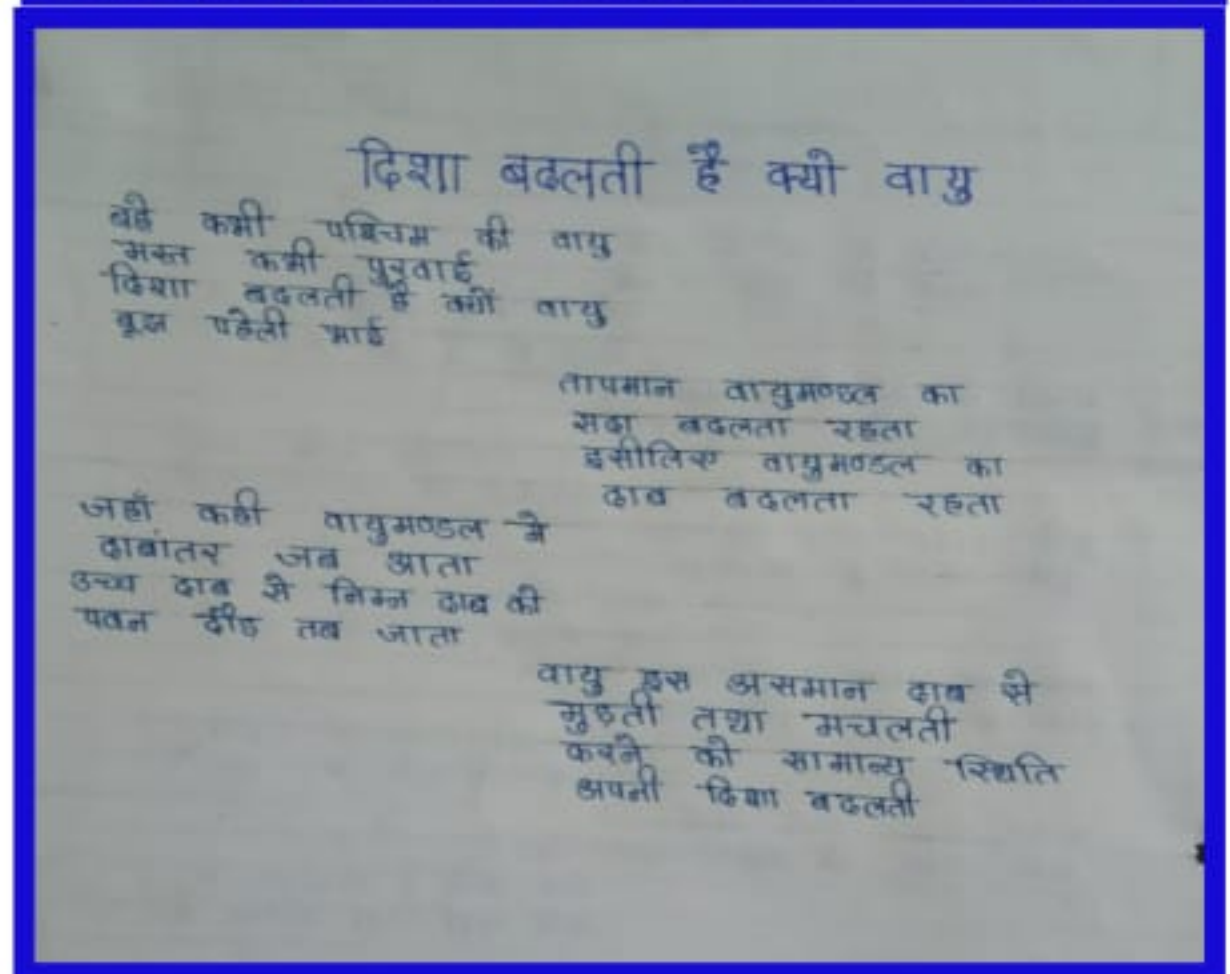 दिशा बदलती है क्यो वायु
बहे कभी पश्चिम की वायु
मस्त कभी पुरवाई
दिशा बदलती है क्यों वायु
बूझ पहेली भाई
तापमान वायुमण्डल का
सदा बदलता रहता
इसीलिए वायुमण्डल का
दाब बदलता रहता
जहाँ कही वायुमण्डल मे
दाबांतर जब आता
उच्च दाब से निम्न दाब की
पवन दौड तब जाता
वायु इस असमान दाब से
मुडती तथा मचलती
करने को सामान्य स्थिति
अपनी दिशा बदलती